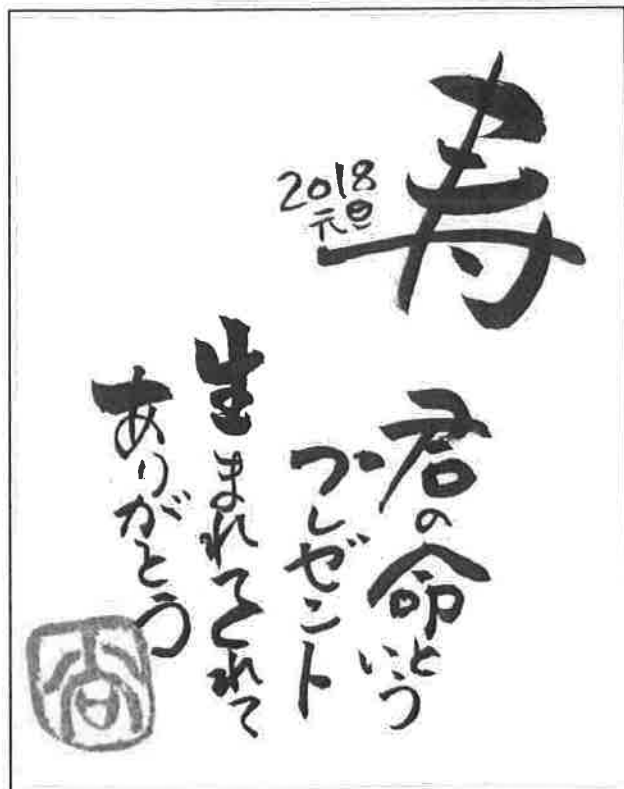 寿
2018
元旦
君の命という
プレゼント
生まれてくれて
ありがとう